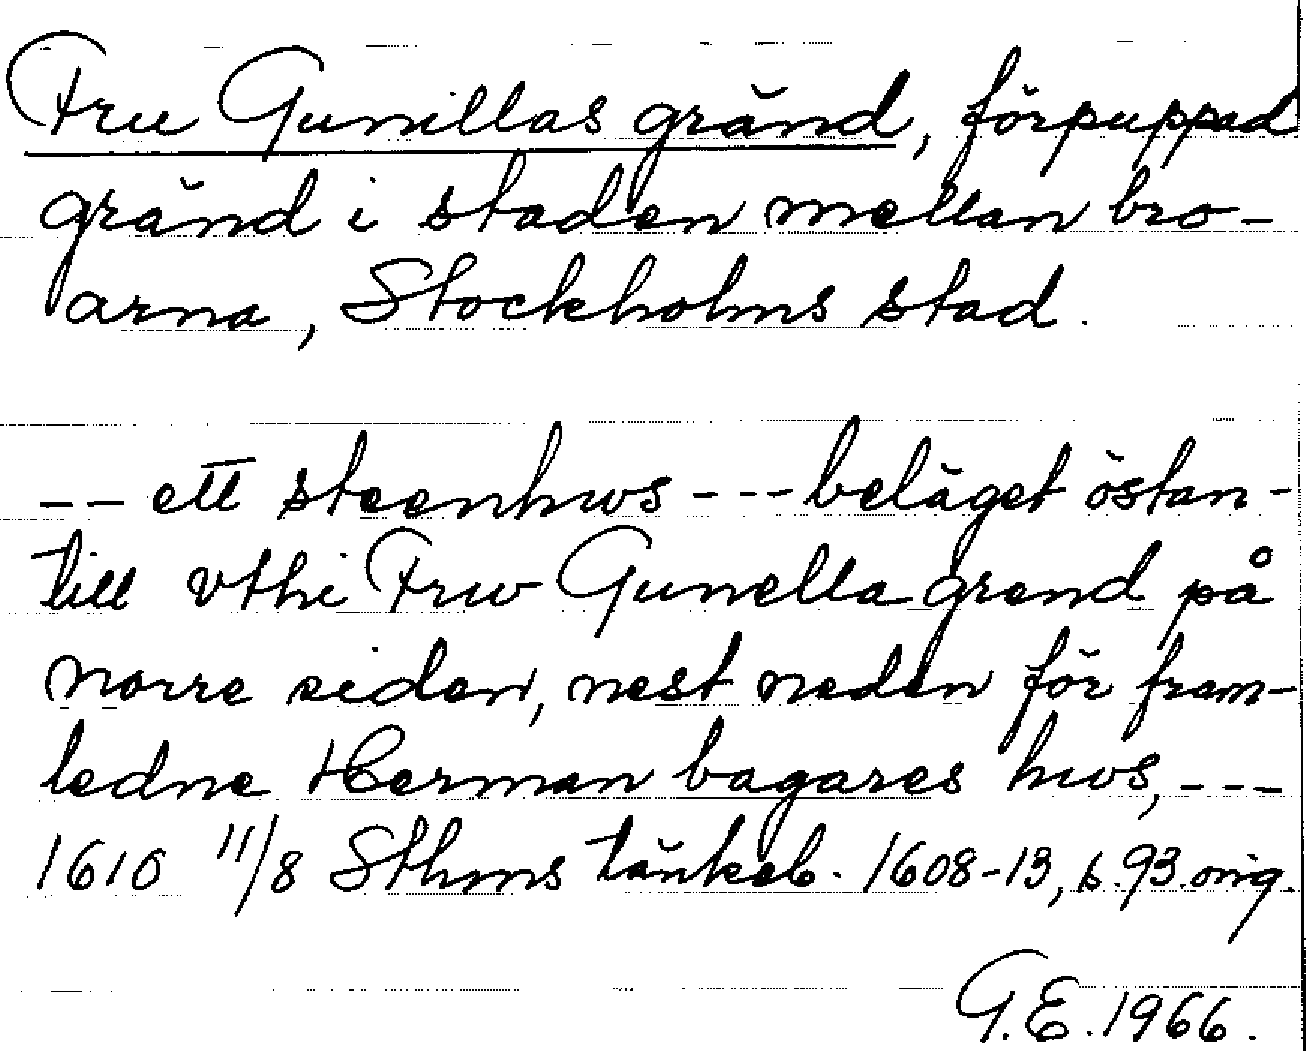 Fru Gunillas gränd, förpuppad
gränd i staden mellan bro-
arna, Stockholms stad.
-- ett steenhws --- beläget östan-
till vthi Frw Gunella grend på
norre siden, nest neden för fram-
ledne Herman bagares hws, ---
1610 11/8 Sthms tänkeb. 1608-13, s. 93. orig.
G.E. 1966.